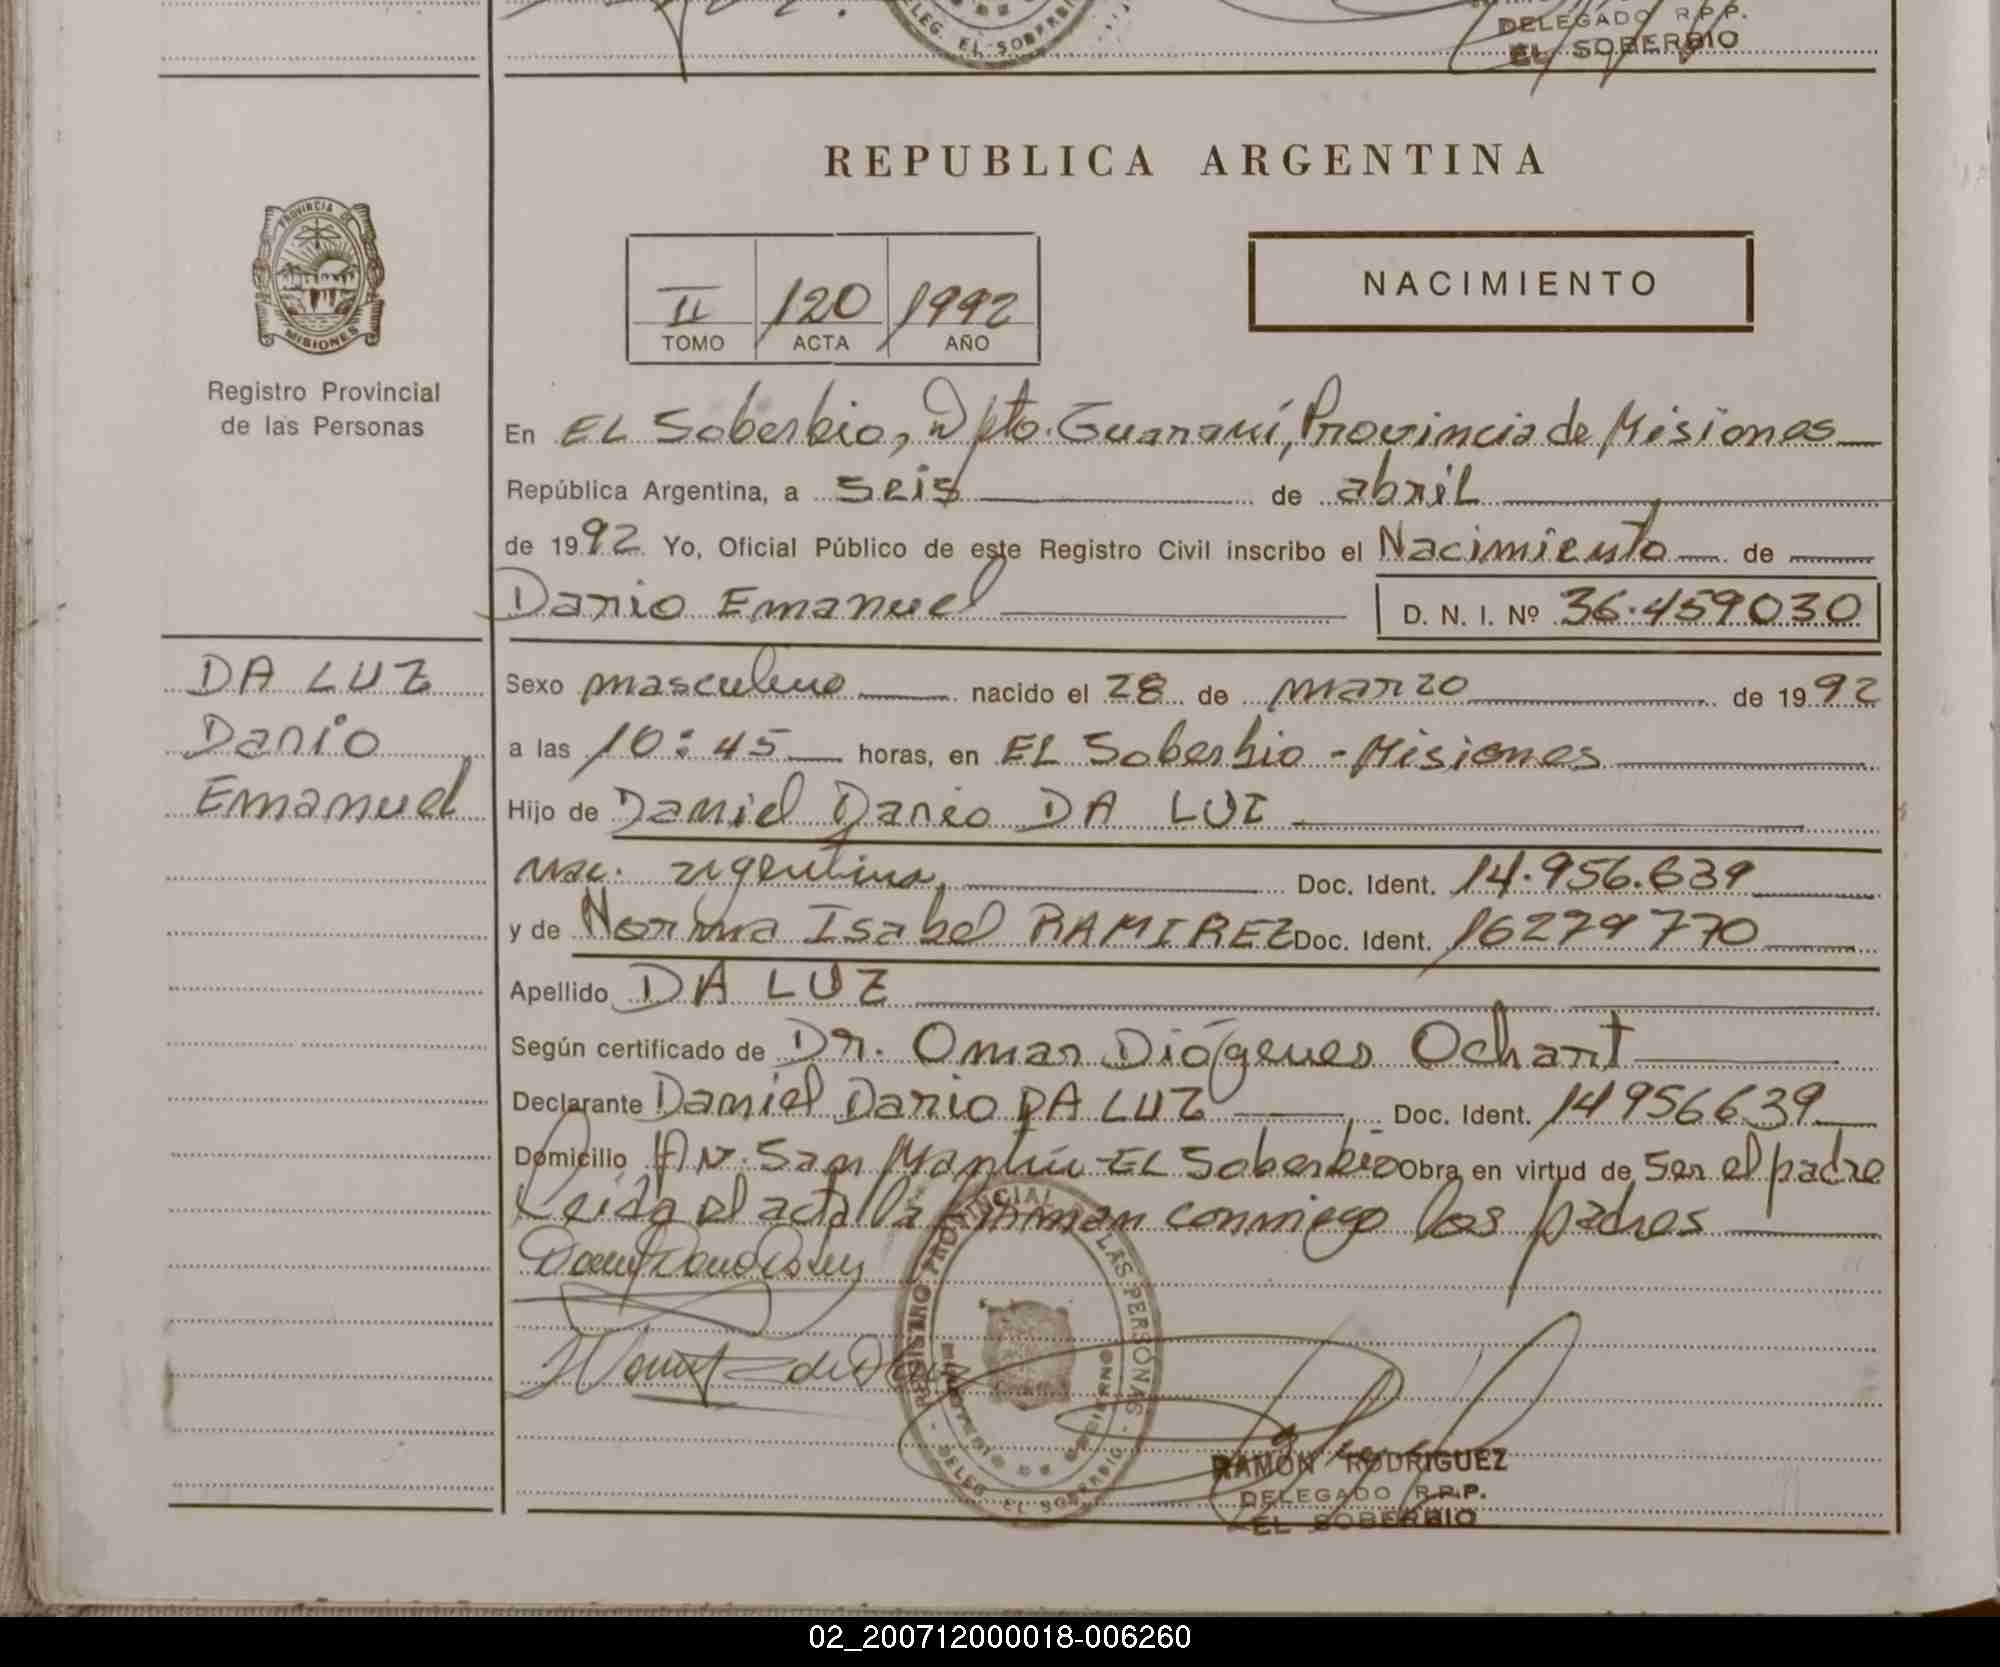 DELEG. EL SOBERBIO
DELEGADO R.P.P.
EL SOBERBIO
REPUBLICA ARGENTINA
PROVINCIA DE
MISIONES
Registro Provincial
de las Personas
II 120 1992
TOMO ACTA AÑO
NACIMIENTO
En EL Soberbio, Dpto. Guaraní, Provincia de Misiones
República Argentina, a seis de abril
de 1992 Yo, Oficial Público de este Registro Civil inscribo el Nacimiento de
Dario Emanuel D. N. I. Nº 36.459030
DA LUZ
Dario
Emanuel
Sexo masculino nacido el 28 de marzo de 1992
a las 10:45 horas, en EL Soberbio - Misiones
Hijo de Daniel Dario DA LUZ
nac. argentina, Doc. Ident. 14.956.639
y de Norma Isabel RAMIREZ Doc. Ident. 16279770
Apellido DA LUZ
Según certificado de Dr. Omar Diógenes Ochart
Declarante Daniel Dario DA LUZ Doc. Ident. 14956639
Domicilio Av. San Martín - EL Soberbio Obra en virtud de ser el padre
Leida el acta la firman conmigo los padres
REGISTRO PROVINCIAL DE LAS PERSONAS
DELEG. EL SOBERBIO
RAMÓN RODRIGUEZ
DELEGADO R.P.P.
EL SOBERBIO
02_200712000018-006260